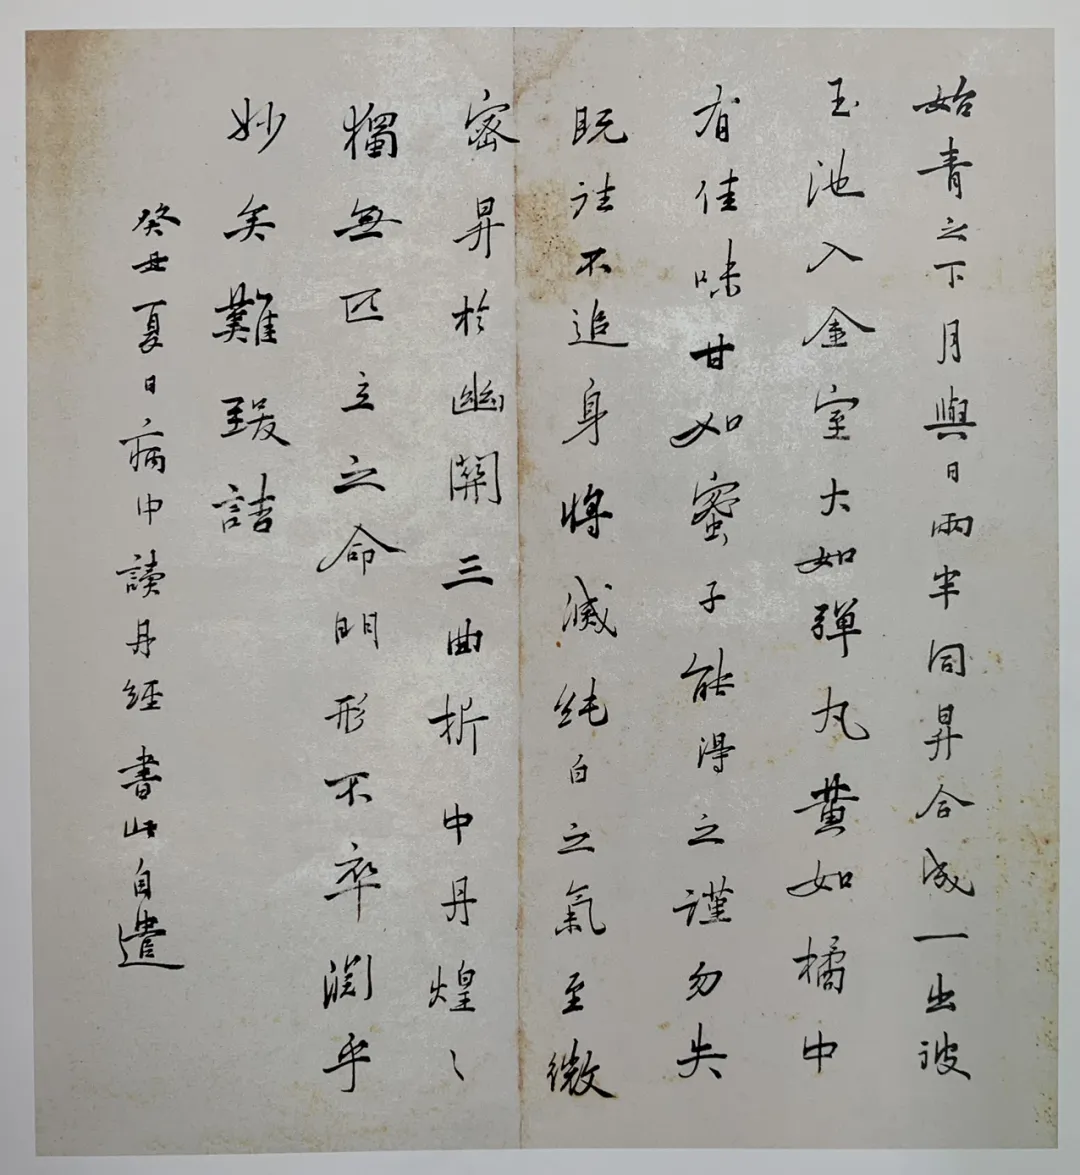 始青之下月與日兩半同昇合成一出彼
玉池入金室大如彈丸黃如橘中
有佳味甘如蜜子能得之謹勿失
既往不追身將滅純白之氣至微
密昇於幽關三曲折中丹煌〻
獨無匹立之命門形不卒淵乎
妙矣難致詰
癸丑夏日病中讀丹經書此自遣